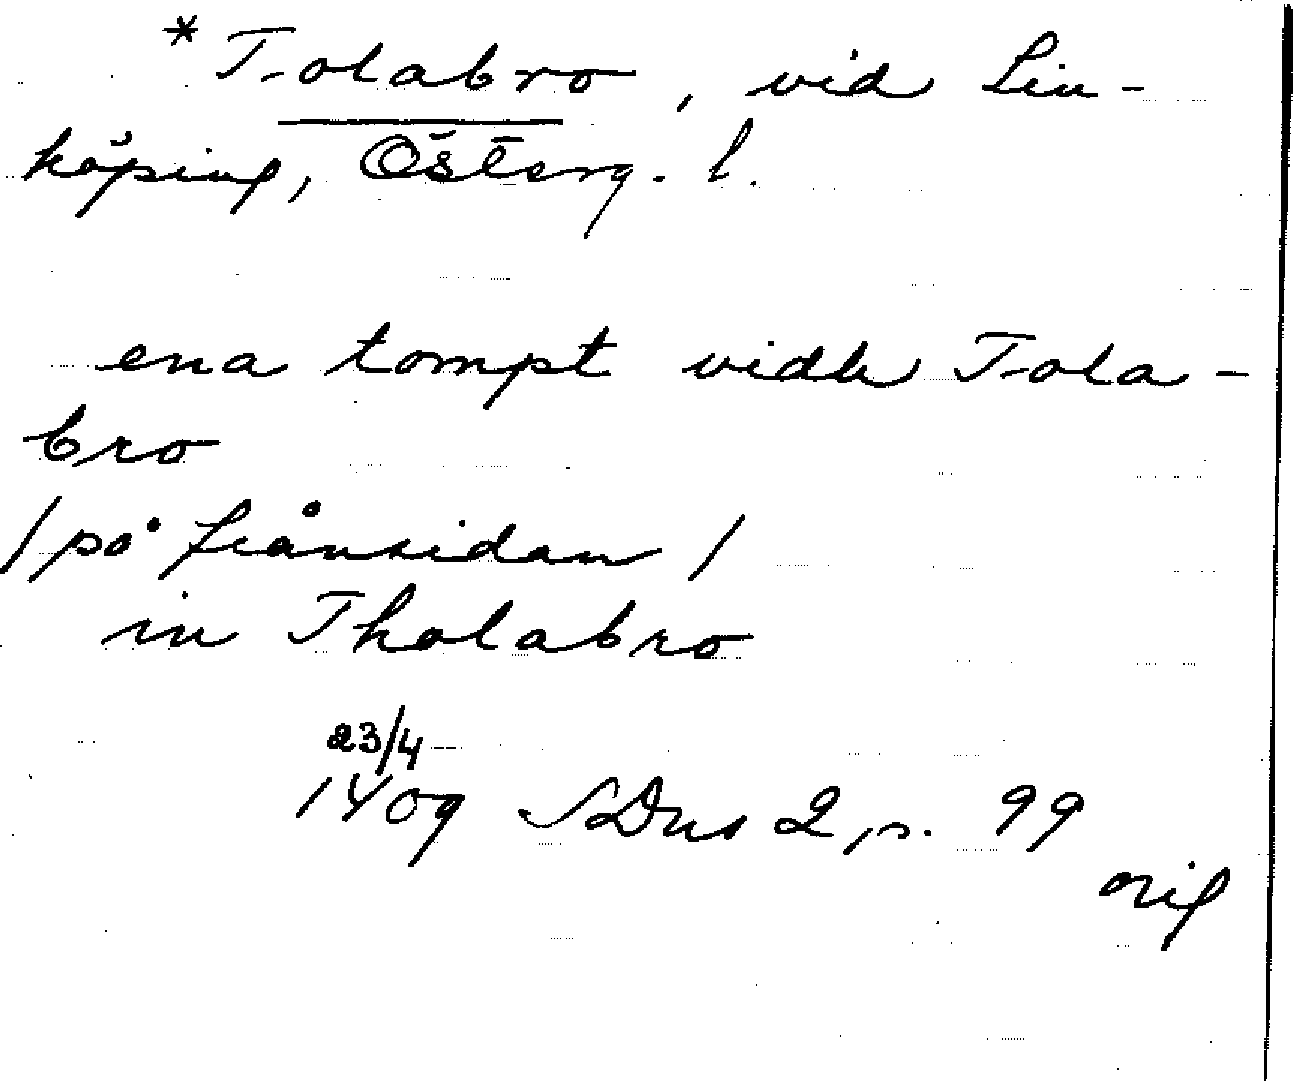 *Tolabro, vid Lin-
köping, Österg. l.
ena tompt vidh Tola-
bro
/på frånsidan/
in Tholabro
23/4
1409 SDns 2, p. 99
orig